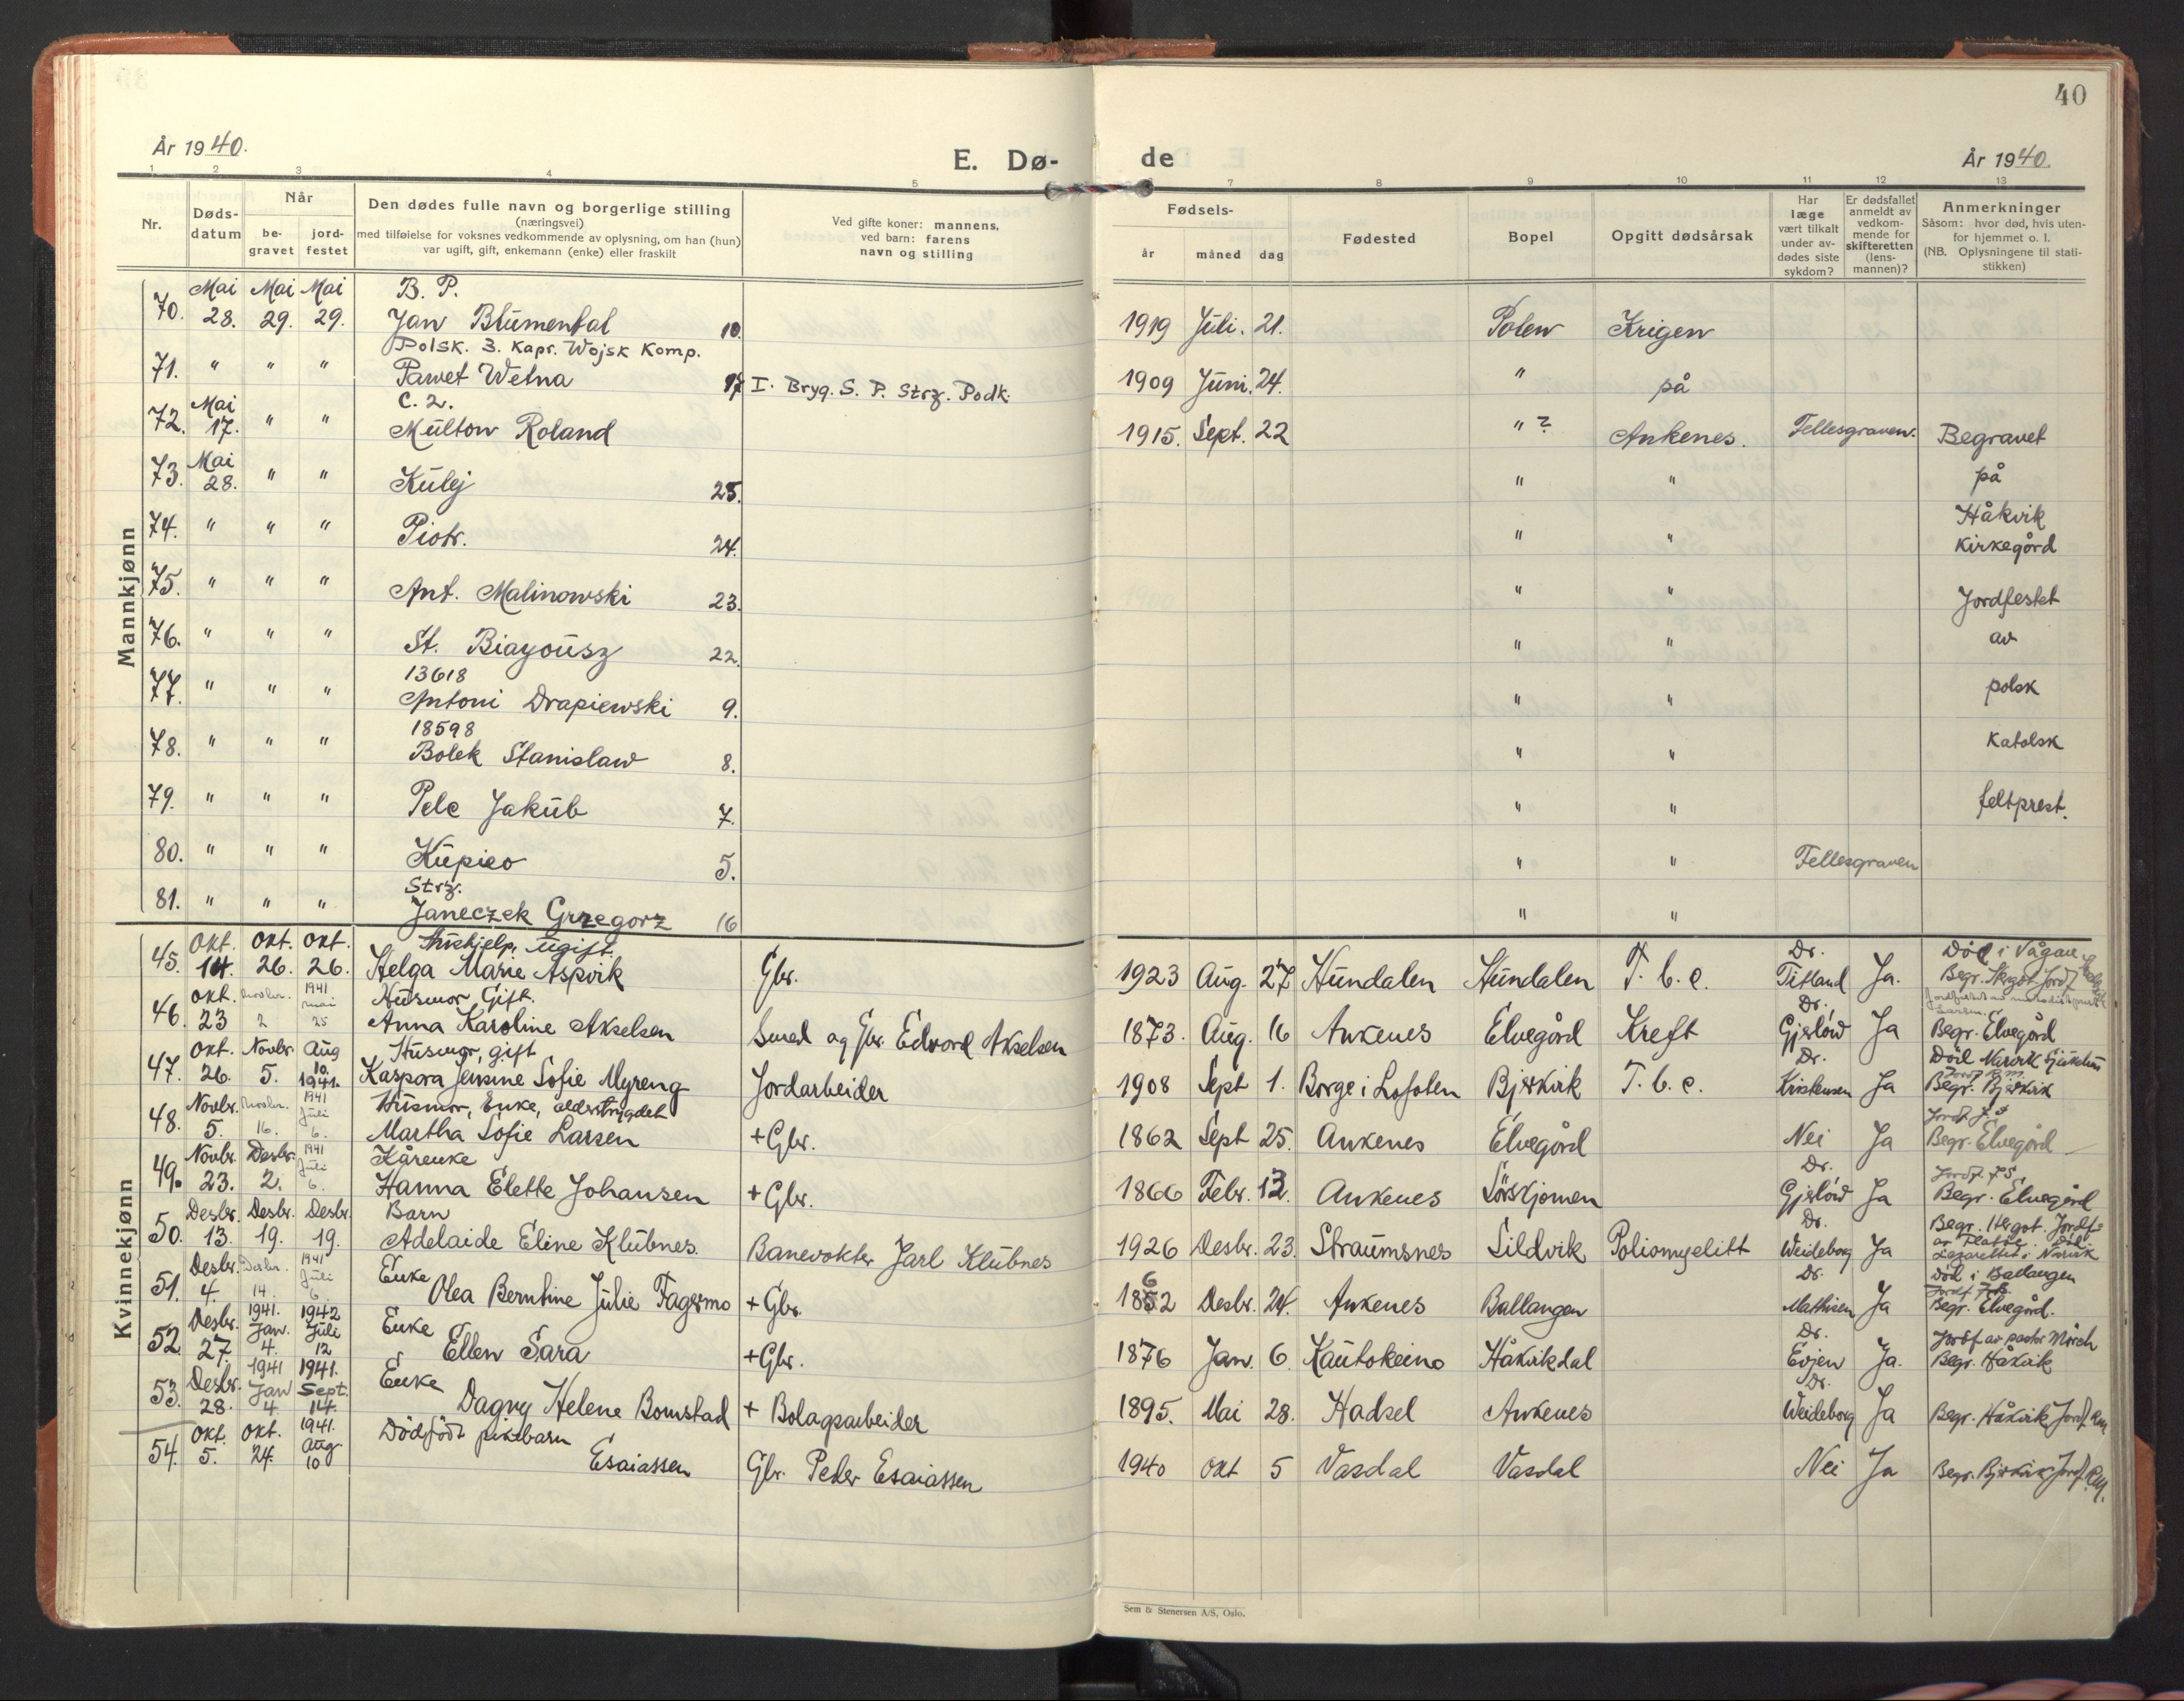 40
År 1940.
E. Dø-
de
År 1940.
1 2 3 4 5 6 7 8 9 10 11 12 13
Nr.
Døds-
datum
Når
be-
gravet
jord-
festet
Den dødes fulle navn og borgerlige stilling
(næringsvei)
med tilføielse for voksnes vedkommende av oplysning, om han (hun)
var ugift, gift, enkemann (enke) eller fraskilt
Ved gifte koner: mannens,
ved barn: farens
navn og stilling
Fødsels-
år måned dag
Fødested
Bopel
Opgitt dødsårsak
Har
læge
vært tilkalt
under av-
dødes siste
sykdom?
Er dødsfallet
anmeldt av
vedkom-
mende for
skifteretten
(lens-
mannen)?
Anmerkninger
Såsom: hvor død, hvis uten-
for hjemmet o. l.
(NB. Oplysningene til stati-
stikken)
Mannkjønn
Mai Mai Mai B. P.
70. 28. 29. 29. Jan Blumental 10. 1919 Juli. 21. Polen Krigen
Polsk. 3. Kapr. Wojsk Komp.
71. " " " Pawet Wetna 17 I. Bryg. S. P. Strz. Podk. 1909 Juni. 24. " på
Mai C. 2.
72. 17. " " Multow Roland 1915. Sept. 22 " ? Ankenes. Fellesgraven. Begravet
Mai
73. 28. " " Kulej 25. " " på
Håkvik
74. " " " Piotr. 24. " " Kirkegård
75. " " " Ant. Malinowski 23. " " Jordfestet
76. " " " St. Biayousz 22. " " av
13618
77. " " " Antoni Drapiewski 9. " " polsk
18598
78. " " " Bolek Stanislaw 8. " " Katolsk
79. " " " Pele Jakub 7. " " feltprest.
80. " " " Kupieo 5. " " Fellesgraven
Strz.
81. " " " Janeczek Grzegorz 16 " "
Kvinnekjønn
Okt. Okt. Okt. Hushjelp, ugift. Dr. Död i Vågan
45. 14. 26. 26. Helga Marie Aspvik Gbr. 1923 Aug. 27 Hundalen Hundalen T. b. c. Titland Ja. Begr. Hergot Jordf
Okt. Novbr. 1941 mai Husmor, Gift. Dr.
46. 23 2 25 Anna Karoline Akselsen Smed og Gbr. Edvard Akselsen 1873. Aug. 16 Ankenes Elvegård Kreft Gjerlöw Ja Begr. Elvegård
Okt. Novbr. Aug Husmor, gift Dr. Död Narvik Sjukehus
47. 26. 5. 10. 1941. Kaspara Jensine Sofie Myreng Jordarbeider 1908 Sept 1. Borge i Lofoten Bjerkvik T. b. c. Kristensen Ja Begr. Bjerkvik
Novbr. Novbr. 1941 Juli Husmor, Enke, alderstrygdet
48. 5. 16. 6. Martha Sofie Larsen + Gbr. 1862 Sept 25. Ankenes Elvegård Nei Ja Begr. Elvegård
Novbr. Desbr. 1941 Juli Kårenke Dr.
49. 23. 2. 6. Hanna Elette Johansen + Gbr. 1866 Febr. 12. Ankenes Sörskjomen Gjerlöw Ja Begr. Elvegård
Desbr. Desbr. Desbr. Barn Dr. Begr. Hergot. Jordf.
50. 13. 19. 19. Adelaide Eline Klubnes. Banevokter Jarl Klubnes 1926 Desbr. 23. Straumsnes Sildvik Poliomyelitt Weideborg Ja Lazarettet i Narvik
Desbr. Desbr. 1941 Juli Enke Dr. Död i Ballangen
51. 4. 14. 6. Olea Berntine Julie Fagermo + Gbr. 1862 Desbr. 24. Ankenes Ballangen Mathisen Ja Begr. Elvegård.
Desbr. 1941. Jan. 1942 Juli Enke Dr. Jordf av pastor Mörch
52. 27. 4. 12 Ellen Sara + Gbr. 1876 Jan. 6. Kautokeino Håkvikdal Evjen Ja. Begr. Håkvik
Desbr. 1941 Jan 1941. Sept. Enke Dr.
53. 28. 4 14. Dagny Helene Bomstad + Bolagsarbeider 1895. Mai 28. Hadsel Ankenes Weideborg Ja Begr. Håkvik Jordf. Rm
Okt. Okt. 1941. Aug Dödfödt pikebarn
54. 5. 24. 10 Esaiassen Gbr. Peder Esaiassen 1940 Okt 5 Vasdal Vasdal Nei Ja Begr. Bjerkvik Jordf. Rm.
Sem & Stenersen A/S, Oslo.